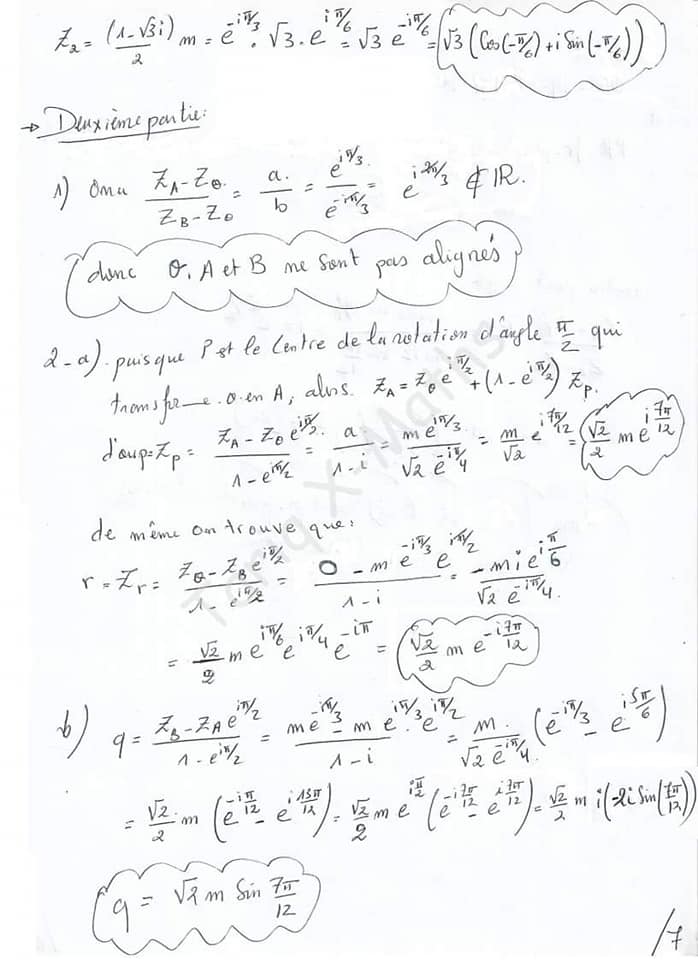 Z₂ = (1-√3i)/2 m = e^(-iπ/3) · √3 · e^(iπ/6) = √3 e^(-iπ/6) = √3 (Cos(-π/6) + i Sin(-π/6))
→ Deuxième partie:
1) Ona (Z_A - Z_O)/(Z_B - Z_O) = a/b = e^(iπ/3)/e^(-iπ/3) = e^(i2π/3) ∉ IR.
donc O, A et B ne sont pas alignés
2-a). puisque P est le Centre de la rotation d'angle π/2 qui
transforme O en A, alors Z_A = Z_O e^(iπ/2) + (1 - e^(iπ/2)) Z_P.
d'où p = Z_P = (Z_A - Z_O e^(iπ/2))/(1 - e^(iπ/2)) = a/(1-i) = m e^(iπ/3)/(√2 e^(-iπ/4)) = m/√2 e^(i7π/12) = √2/2 m e^(i7π/12)
de même on trouve que:
r = Z_r = (Z_O - Z_B e^(iπ/2))/(1 - e^(iπ/2)) = (0 - m e^(-iπ/3) e^(iπ/2))/(1-i) = -m i e^(iπ/6)/(√2 e^(-iπ/4)).
= √2/2 m e^(iπ/6) e^(iπ/4) e^(-iπ) = √2/2 m e^(-i7π/12)
b) q = (Z_B - Z_A e^(iπ/2))/(1 - e^(iπ/2)) = (m e^(-iπ/3) - m e^(iπ/3) · e^(iπ/2))/(1-i) = m/(√2 e^(-iπ/4)) (e^(-iπ/3) - e^(i5π/6))
= √2/2 m (e^(-iπ/12) - e^(i13π/12)) = √2/2 m e^(iπ/2) (e^(-i7π/12) - e^(i7π/12)) = √2/2 m i(-2i Sin(7π/12))
q = √2 m Sin 7π/12
/7